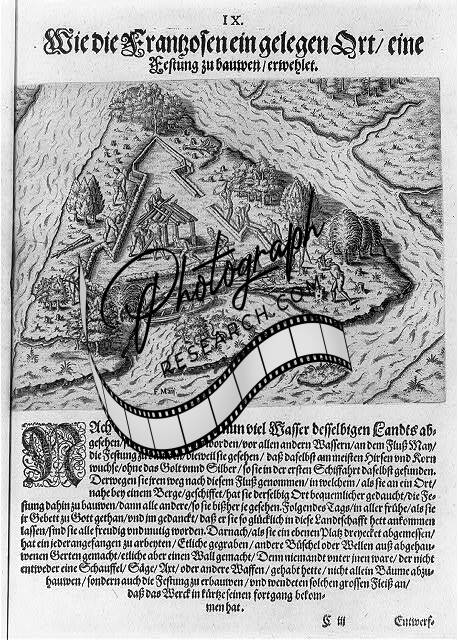 IX.
Wie die Frantzosen ein gelegen Ort/ eine
Festung zu bauwen/ erwehlet.
Photograph
RESEARCH.COM
F. Maij
NAch viel Wasser desselbigen Landes ab-
gesehen/ worden/ vor allen andern Wassern/ an dem Fluß May/
die Festung zu dieweil sie gesehen/ daß daselbst am meisten Hirsen vnd Korn
wuchse/ ohne das Golt vnnd Silber/ so sie in der ersten Schiffahrt daselbst gefunden.
Derwegen sie jren weg nach diesem Fluß genommen/ in welchem/ als sie an ein Ort/
nahe bey einem Berge/ geschiffet/ hat sie derselbig Ort bequemlicher gedaucht/ die Fe-
stung dahin zu bauwen/ dann alle andere/ so sie bißher je gesehen. Folgendes Tags/ in aller frühe/ als sie
jr Gebett zu Gott gethan/ vnd jm gedanckt/ daß er sie so glücklich in diese Landschafft hett ankommen
lassen/ sind sie alle freudig vnd mutig worden. Darnach/ als sie ein ebenen Platz dreyecket abgemessen/
hat ein jeder angefangen zu arbeyten/ Etliche gegraben/ andere Büschel oder Wellen auß abgehau-
wenen Gerten gemacht/ etliche aber einen Wall gemacht/ Denn niemandt vnter jnen ware/ der nicht
entweder eine Schauffel/ Säge/ Axt/ oder andere Waffen/ gehabt hette/ nicht allein Bäume abzu-
hauwen/ sondern auch die Festung zu erbauwen/ vnd wendeten solchen grossen Fleiß an/
daß das Werck in kürtze seinen fortgang bekom-
men hat.
C iij Entwerf-